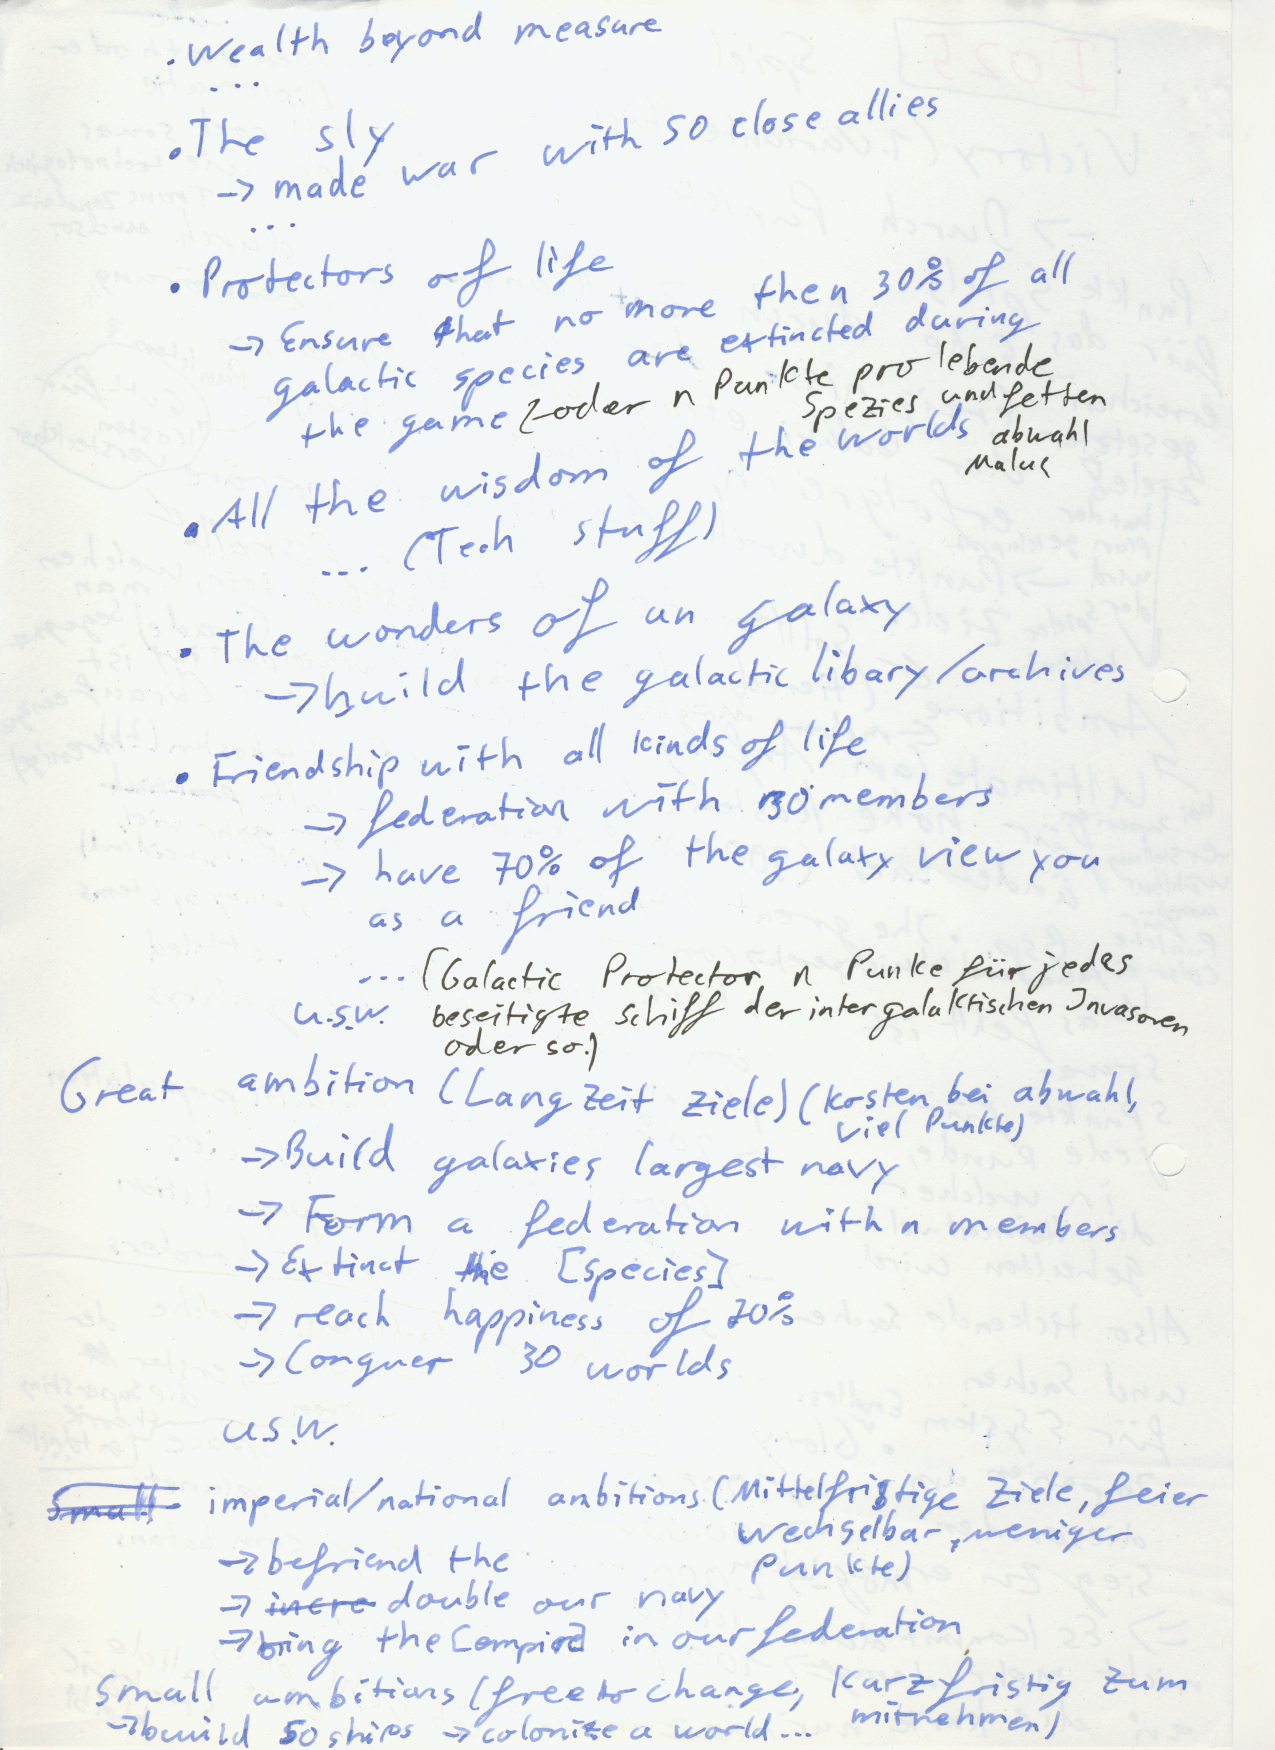 • Wealth beyond measure
...
• The sly
-> made war with 50 close allies
...
• Protectors of life
-> Ensure that no more then 30% of all
galactic species are extincted during
the game (-oder n Punkte pro lebende
Spezies und fetten
abwahl
Malus
• All the wisdom of the worlds
... (Tech stuff)
• The wonders of un galaxy
-> build the galactic libary/archives
• Friendship with all kinds of life
-> federation with 30 members
-> have 70% of the galaxy view you
as a friend
... (Galactic Protector n Punke für jedas
u.s.w. beseitigte schiff der intergalaktischen Invasoren
oder so.)
Great ambition (Lang Zeit Ziele) (Kosten bei abwahl,
viel Punkte)
-> Build galaxies largest navy
-> Form a federation with n members
-> Extinct the [species]
-> reach happiness of 70%
-> Conquer 30 worlds
u.s.w.
Small imperial/national ambitions (Mittelfristige Ziele, feier
wechselbar, weniger
Punkte)
-> befriend the
-> incre double our navy
-> bing the [empire] in our federation
Small ambitions (free to change, Kurzfristig zum
mitnehmen)
-> build 50 ships -> colonize a world ...